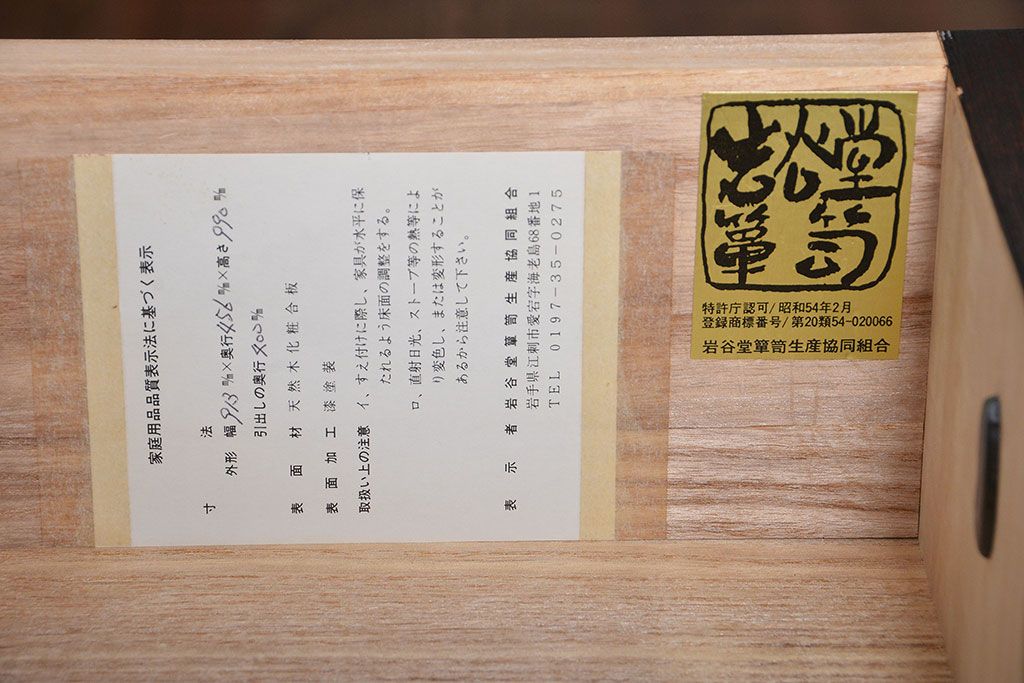 家庭用品品質表示法に基づく表示
寸法
外形 幅 913 ㎜×奥行 456 ㎜×高さ 990 ㎜
引出しの奥行 400 ㎜
表面材 天然木化粧合板
表面加工 漆塗装
取扱い上の注意 イ、すえ付けに際し、家具が水平に保
たれるよう床面の調整をする。
ロ、直射日光、ストーブ等の熱等によ
り変色し、または変形することが
あるから注意して下さい。
表示者 岩谷堂簞笥生産協同組合
岩手県江刺市愛宕字海老島68番地1
TEL 0197-35-0275
岩谷堂
簞笥
特許庁認可/昭和54年2月
登録商標番号/第20類54-020066
岩谷堂簞笥生産協同組合